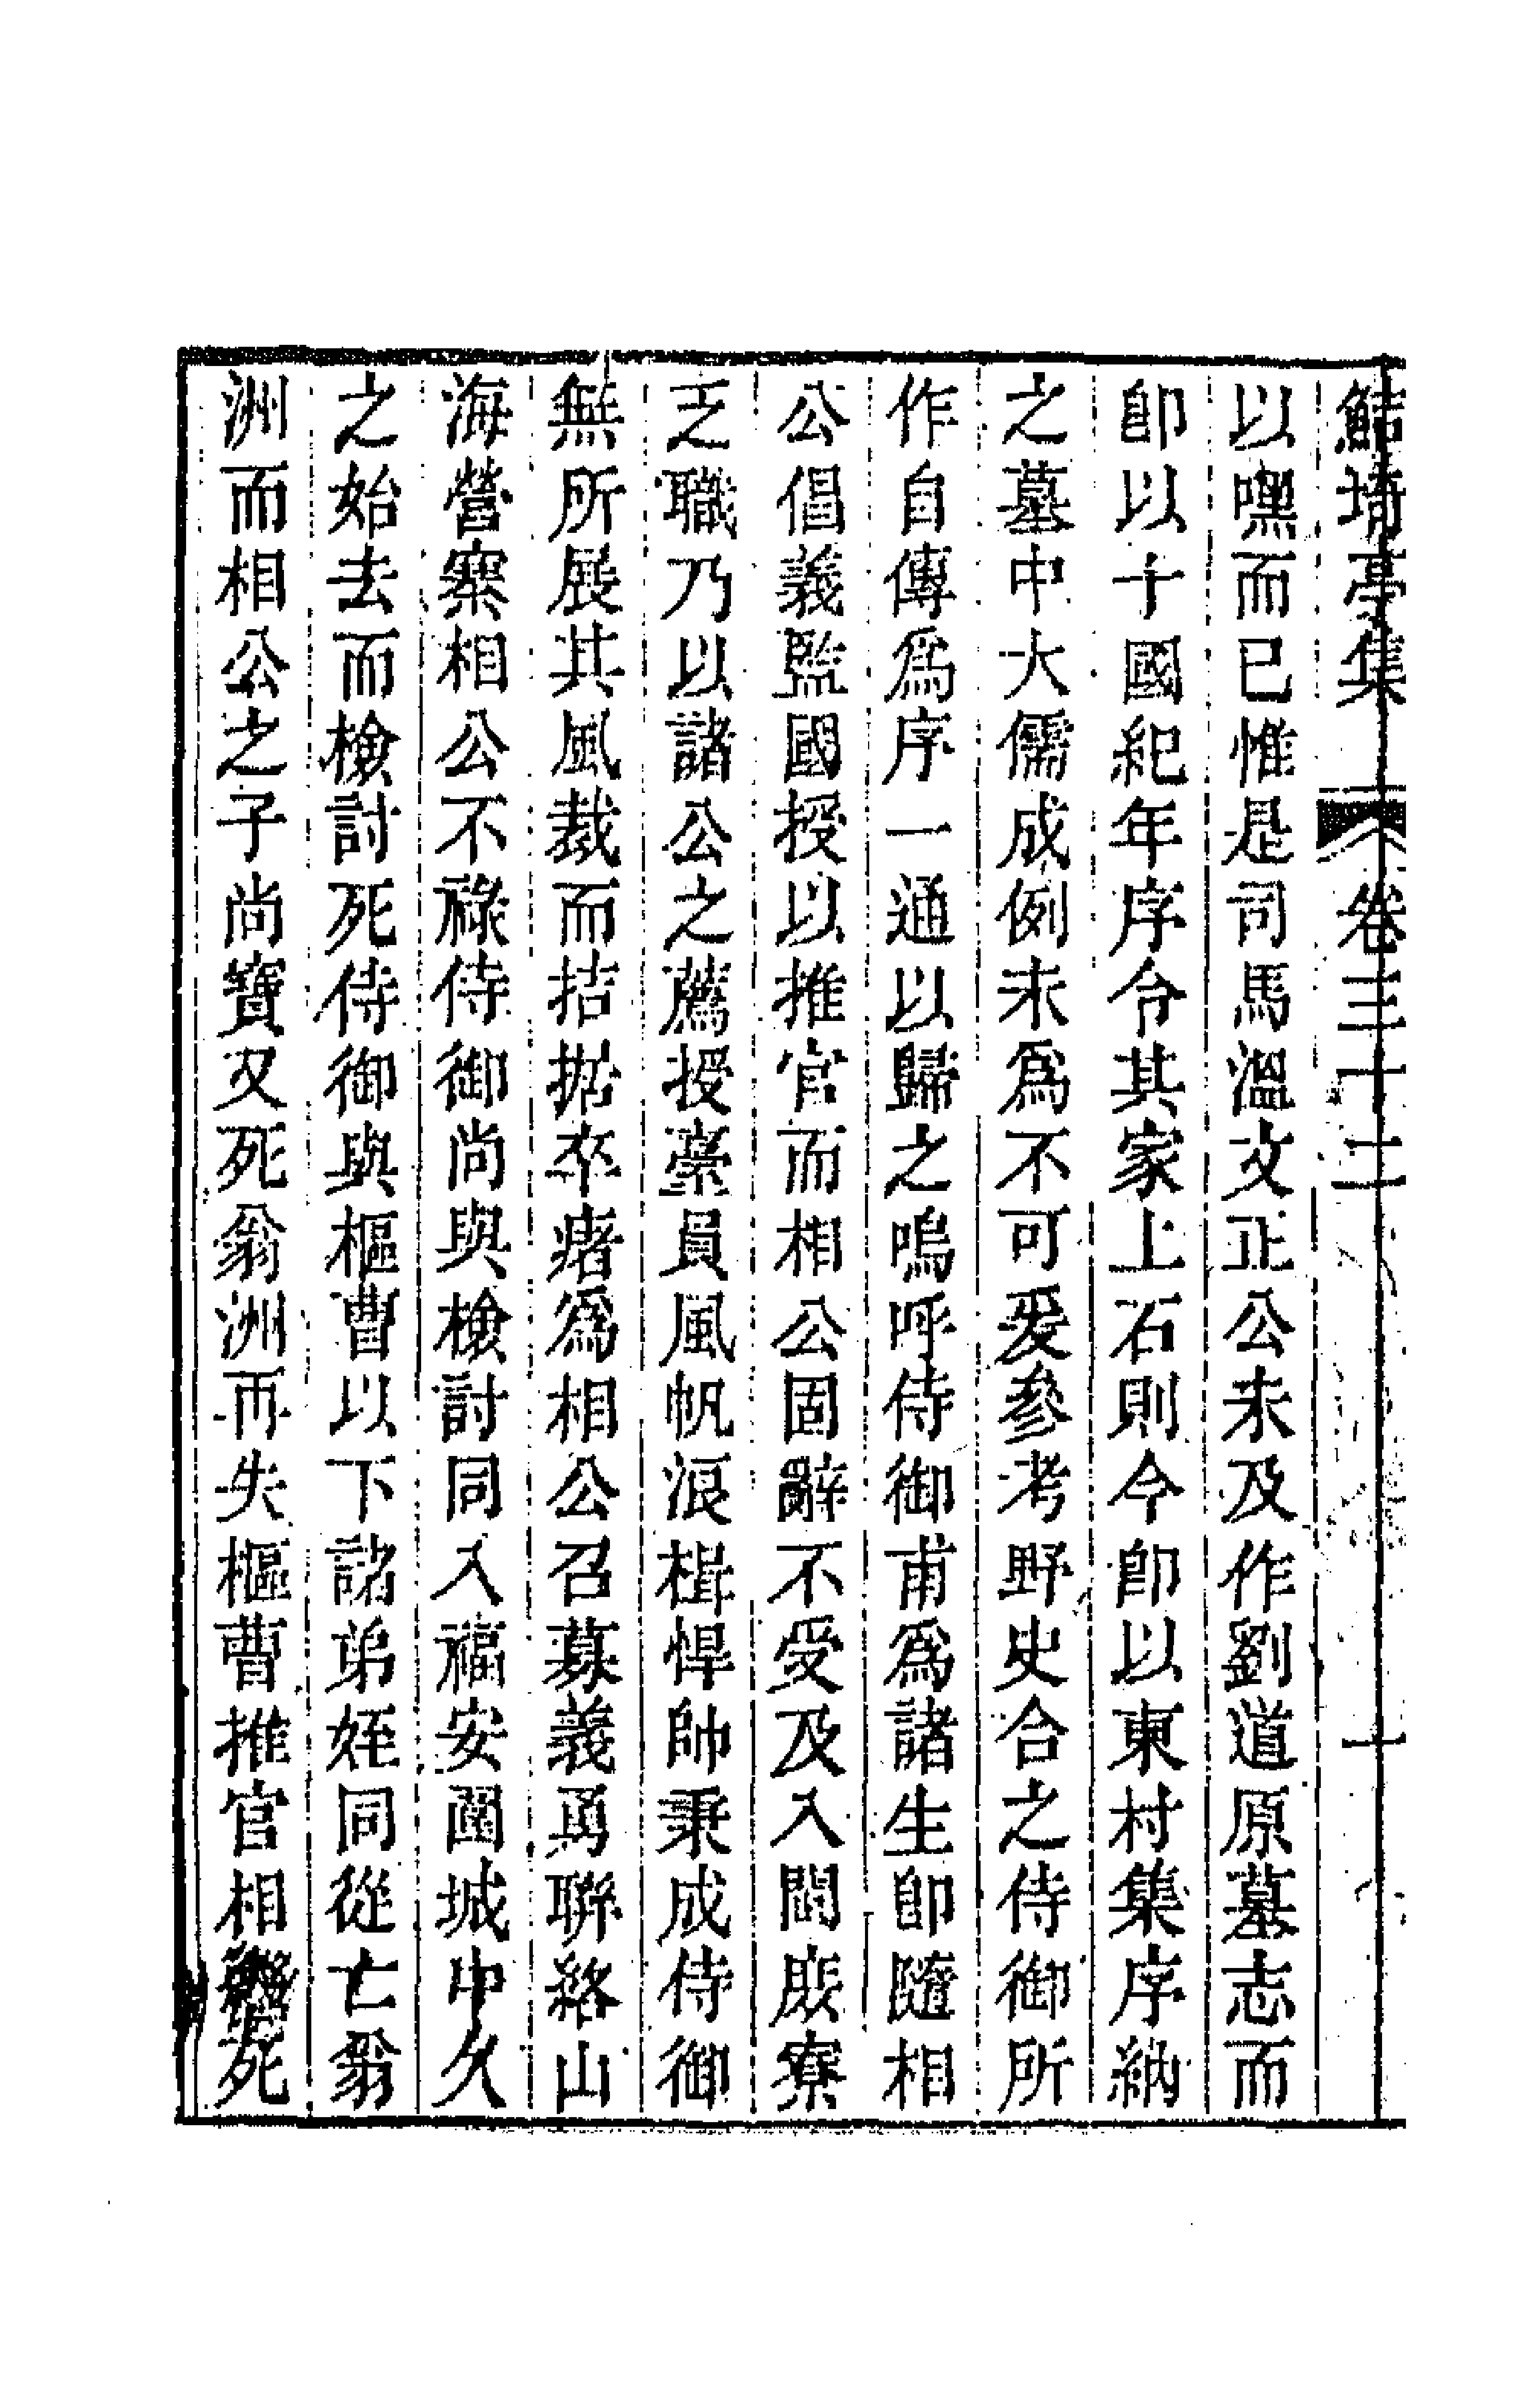 鮚埼亭集 卷三十二 十
以嘿而已惟是司馬溫文正公未及作劉道原墓志而
卽以十國紀年序令其家上石則今卽以東村集序納
之墓中大儒成例未爲不可爰參考野史合之侍御所
作自傳爲序一通以歸之嗚呼侍御甫爲諸生卽隨相
公倡義監國授以推官而相公固辭不受及入閩庶寮
乏職乃以諸公之薦授臺員風帆浪楫悍帥秉成侍御
無所展其風裁而拮据卒瘏爲相公召募義勇聯絡山
海營寨相公不祿侍御尚與檢討同入福安圍城中久
之始去而檢討死侍御與樞曹以下諸弟姪同從亡翁
洲而相公之子尚寶又死翁洲再失樞曹推官相繼死